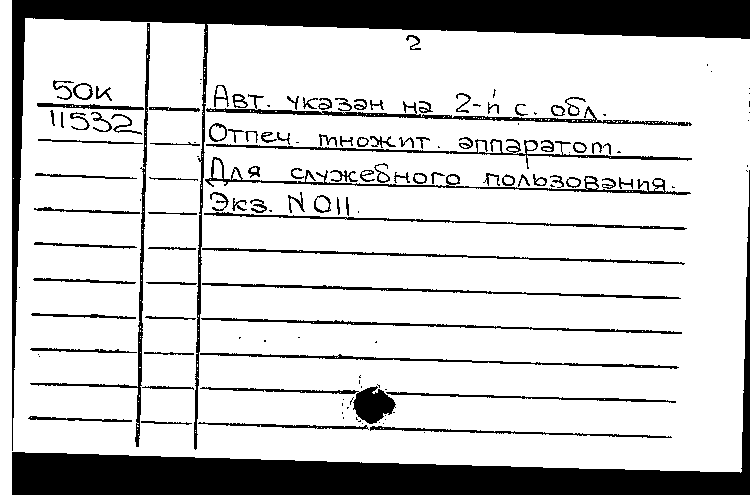 2
50к
Авт. указан на 2-й с. обл.
11532
Отпеч. множит. аппаратом.
Для служебного пользования.
Экз. N 011.